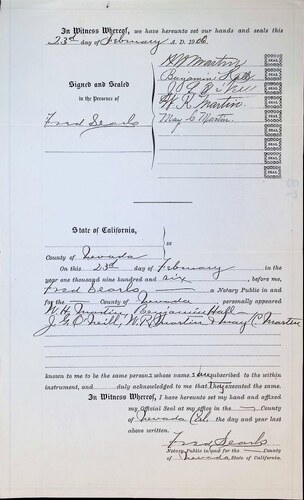 In Witness Whereof, we have hereunto set our hands and seals this
23rd day of February A. D. 1906.
W H Martin SEAL
Benjamin Hall SEAL
Signed and Sealed
J G O'Neill SEAL
in the Presence of
W. R. Martin SEAL
Fred Searls
May C Martin SEAL
SEAL
SEAL
SEAL
SEAL
State of California,
ss
County of Nevada
On this 23rd day of February in the
year one thousand nine hundred and six, before me,
Fred Searls a Notary Public in and
for the County of Nevada, personally appeared
W. H. Martin, Benjamin Hall
J G O'Neill, W. R. Martin & May C Martin
known to me to be the same persons whose names are subscribed to the within
instrument, and duly acknowledged to me that They executed the same.
In Witness Whereof, I have hereunto set my hand and affixed
my Official Seal at my office in the County
of Nevada Cal. the day and year last
above written.
Fred Searls
Notary Public in and for the County
of Nevada State of California.